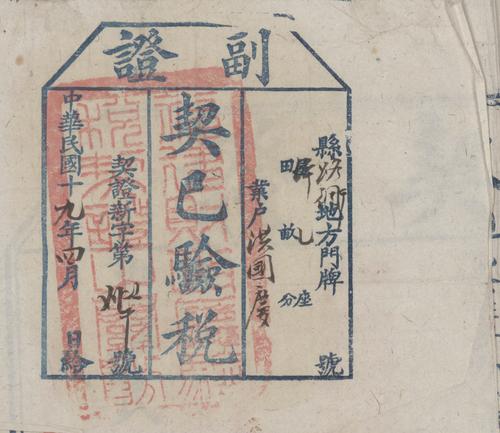 副證
縣 地方門牌 號
田 畝 分 座
業户洪國慶
契已驗税
契證新字第 號
中華民國十九年四月 日給